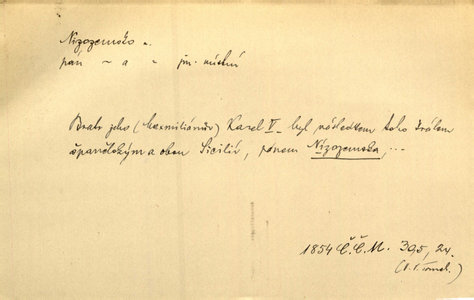 Nizozemsko n.
pán ~ a ~ jm. místní
Bratr jeho (Maxmiliánův) Karel V. byl následkem toho králem
španělským a obou Sicilií, pánem Nizozemska, ...
1854 Č.Č.M. 395, 24.